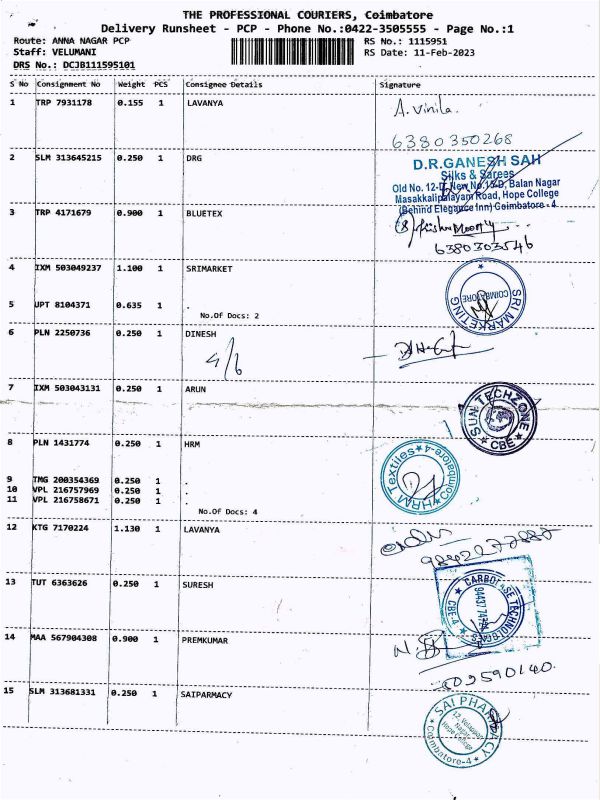 THE PROFESSIONAL COURIERS, Coimbatore
Delivery Runsheet - PCP - Phone No.:0422-3505555 - Page No.:1
Route: ANNA NAGAR PCP RS No.: 1115951
Staff: VELUMANI RS Date: 11-Feb-2023
DRS No.: DCJB111595101
S No Consignment No Weight PCS Consignee Details Signature
1 TRP 7931178 0.155 1 LAVANYA A. Vinila.
6380350268
2 SLM 313645215 0.250 1 DRG
D.R.GANESH SAH
Silks & Sarees
Old No. 12-D, New No.15-D, Balan Nagar
Masakkalipalayam Road, Hope College
(Behind Elegance Inn) Coimbatore - 4
3 TRP 4171679 0.900 1 BLUETEX
6380303546
4 IXM 503049237 1.100 1 SRIMARKET
SRI MARKETING
COIMBATORE
5 UPT 8104371 0.635 1 .
No.Of Docs: 2
6 PLN 2250736 0.250 1 DINESH
4/6
7 IXM 503043131 0.250 1 ARUN
SUN TECHZONE
CBE
8 PLN 1431774 0.250 1 HRM
HRM Textiles
Coimbatore-4
9 TMG 200354369 0.250 1 .
10 VPL 216757969 0.250 1 .
11 VPL 216758671 0.250 1 .
No.Of Docs: 4
12 KTG 7170224 1.130 1 LAVANYA
13 TUT 6363626 0.250 1 SURESH
CBE-4
14 MAA 567904308 0.900 1 PREMKUMAR
15 SLM 313681331 0.250 1 SAIPARMACY
SAI PHARMACY
Hope College
Coimbatore-4